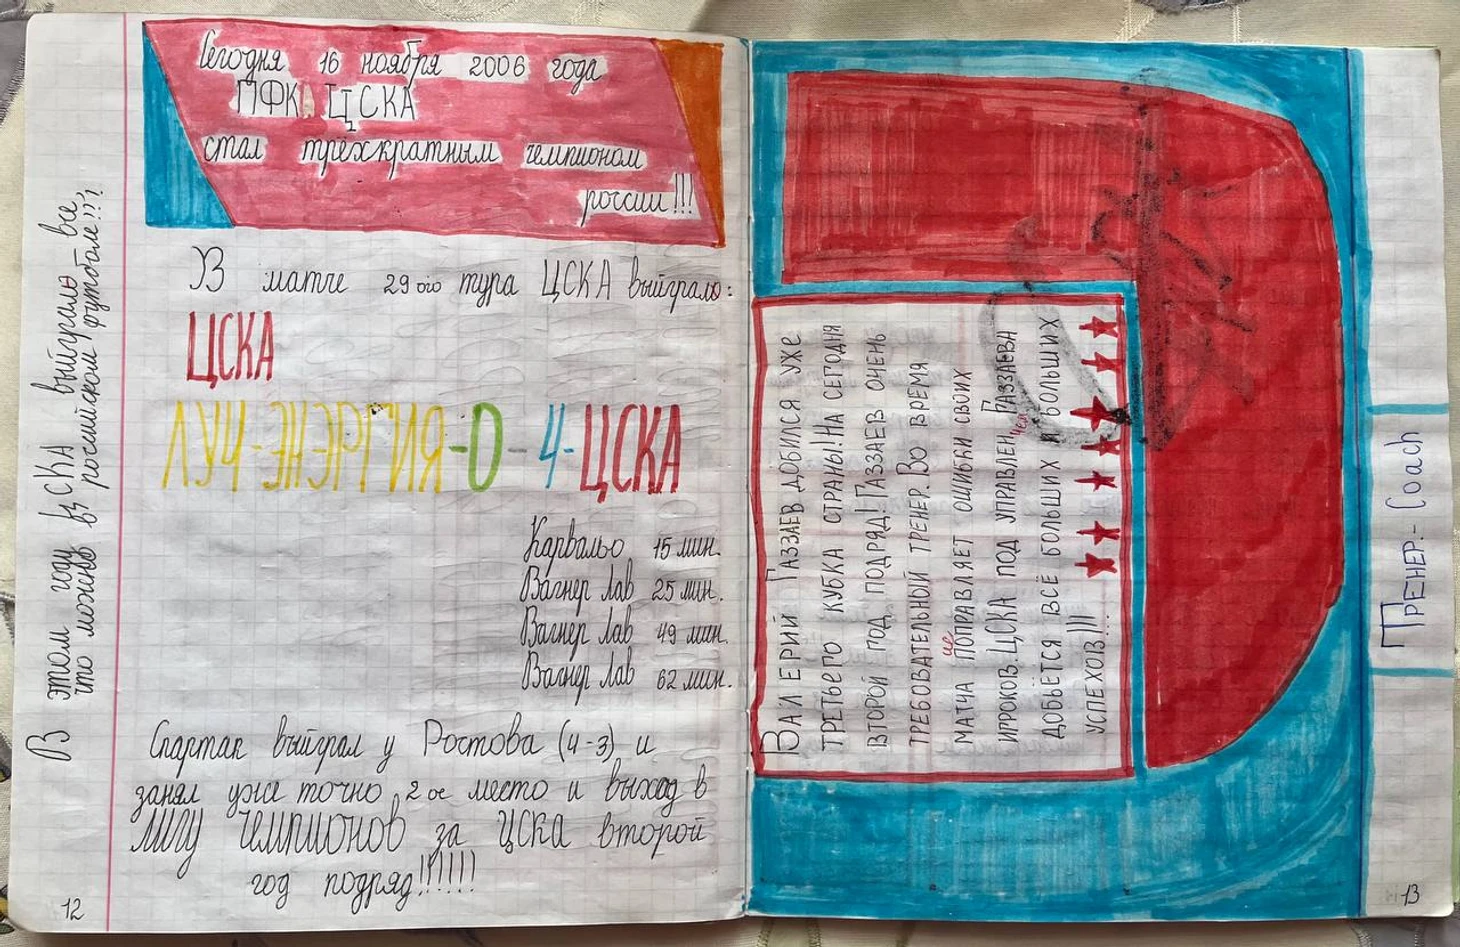 Сегодня 16 ноября 2006 года
ПФК ЦСКА
стал трёхкратным чемпионом
россии!!!
В матче 29ого тура ЦСКА выйграло:
ЦСКА
ЛУЧ-ЭНЭРГИЯ-0-4-ЦСКА
Карвальо 15 мин.
Вагнер Лав 25 мин.
Вагнер Лав 49 мин.
Вагнер Лав 62 мин.
Спартак выйграл у Ростова (4-3) и
занял уже точно 2ое место и выход в
ЛИГУ ЧЕМПИОНОВ за ЦСКА второй
год подряд!!!!!!
В этом году ЦСКА выйграло все,
что можно в российском футболе!!!
12
ВАЛЕРИЙ ГАЗЗАЕВ ДОБИЛСЯ УЖЕ
ТРЕТЬЕГО КУБКА СТРАНЫ! НА СЕГОДНЯ
ВТОРОЙ ГОД ПОДРЯД! ГАЗЗАЕВ ОЧЕНЬ
ТРЕБОВАТЕЛЬНЫЙ ТРЕНЕР. ВО ВРЕМЯ
МАТЧА ПОПРАВЛЯЕТ ОШИБКИ СВОИХ
ИГРОКОВ. ЦСКА ПОД УПРАВЛЕН ГАЗЗАЕВА
ДОБЬЁТСЯ ВСЁ БОЛЬШИХ И БОЛЬШИХ
УСПЕХОВ!!!
ТРЕНЕР.- Coach
13